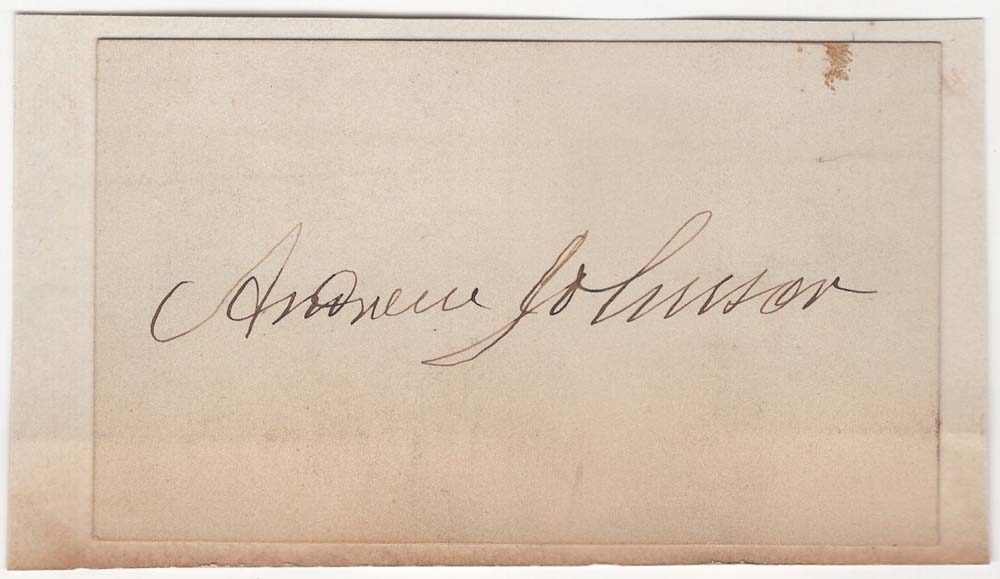 Andrew Johnson